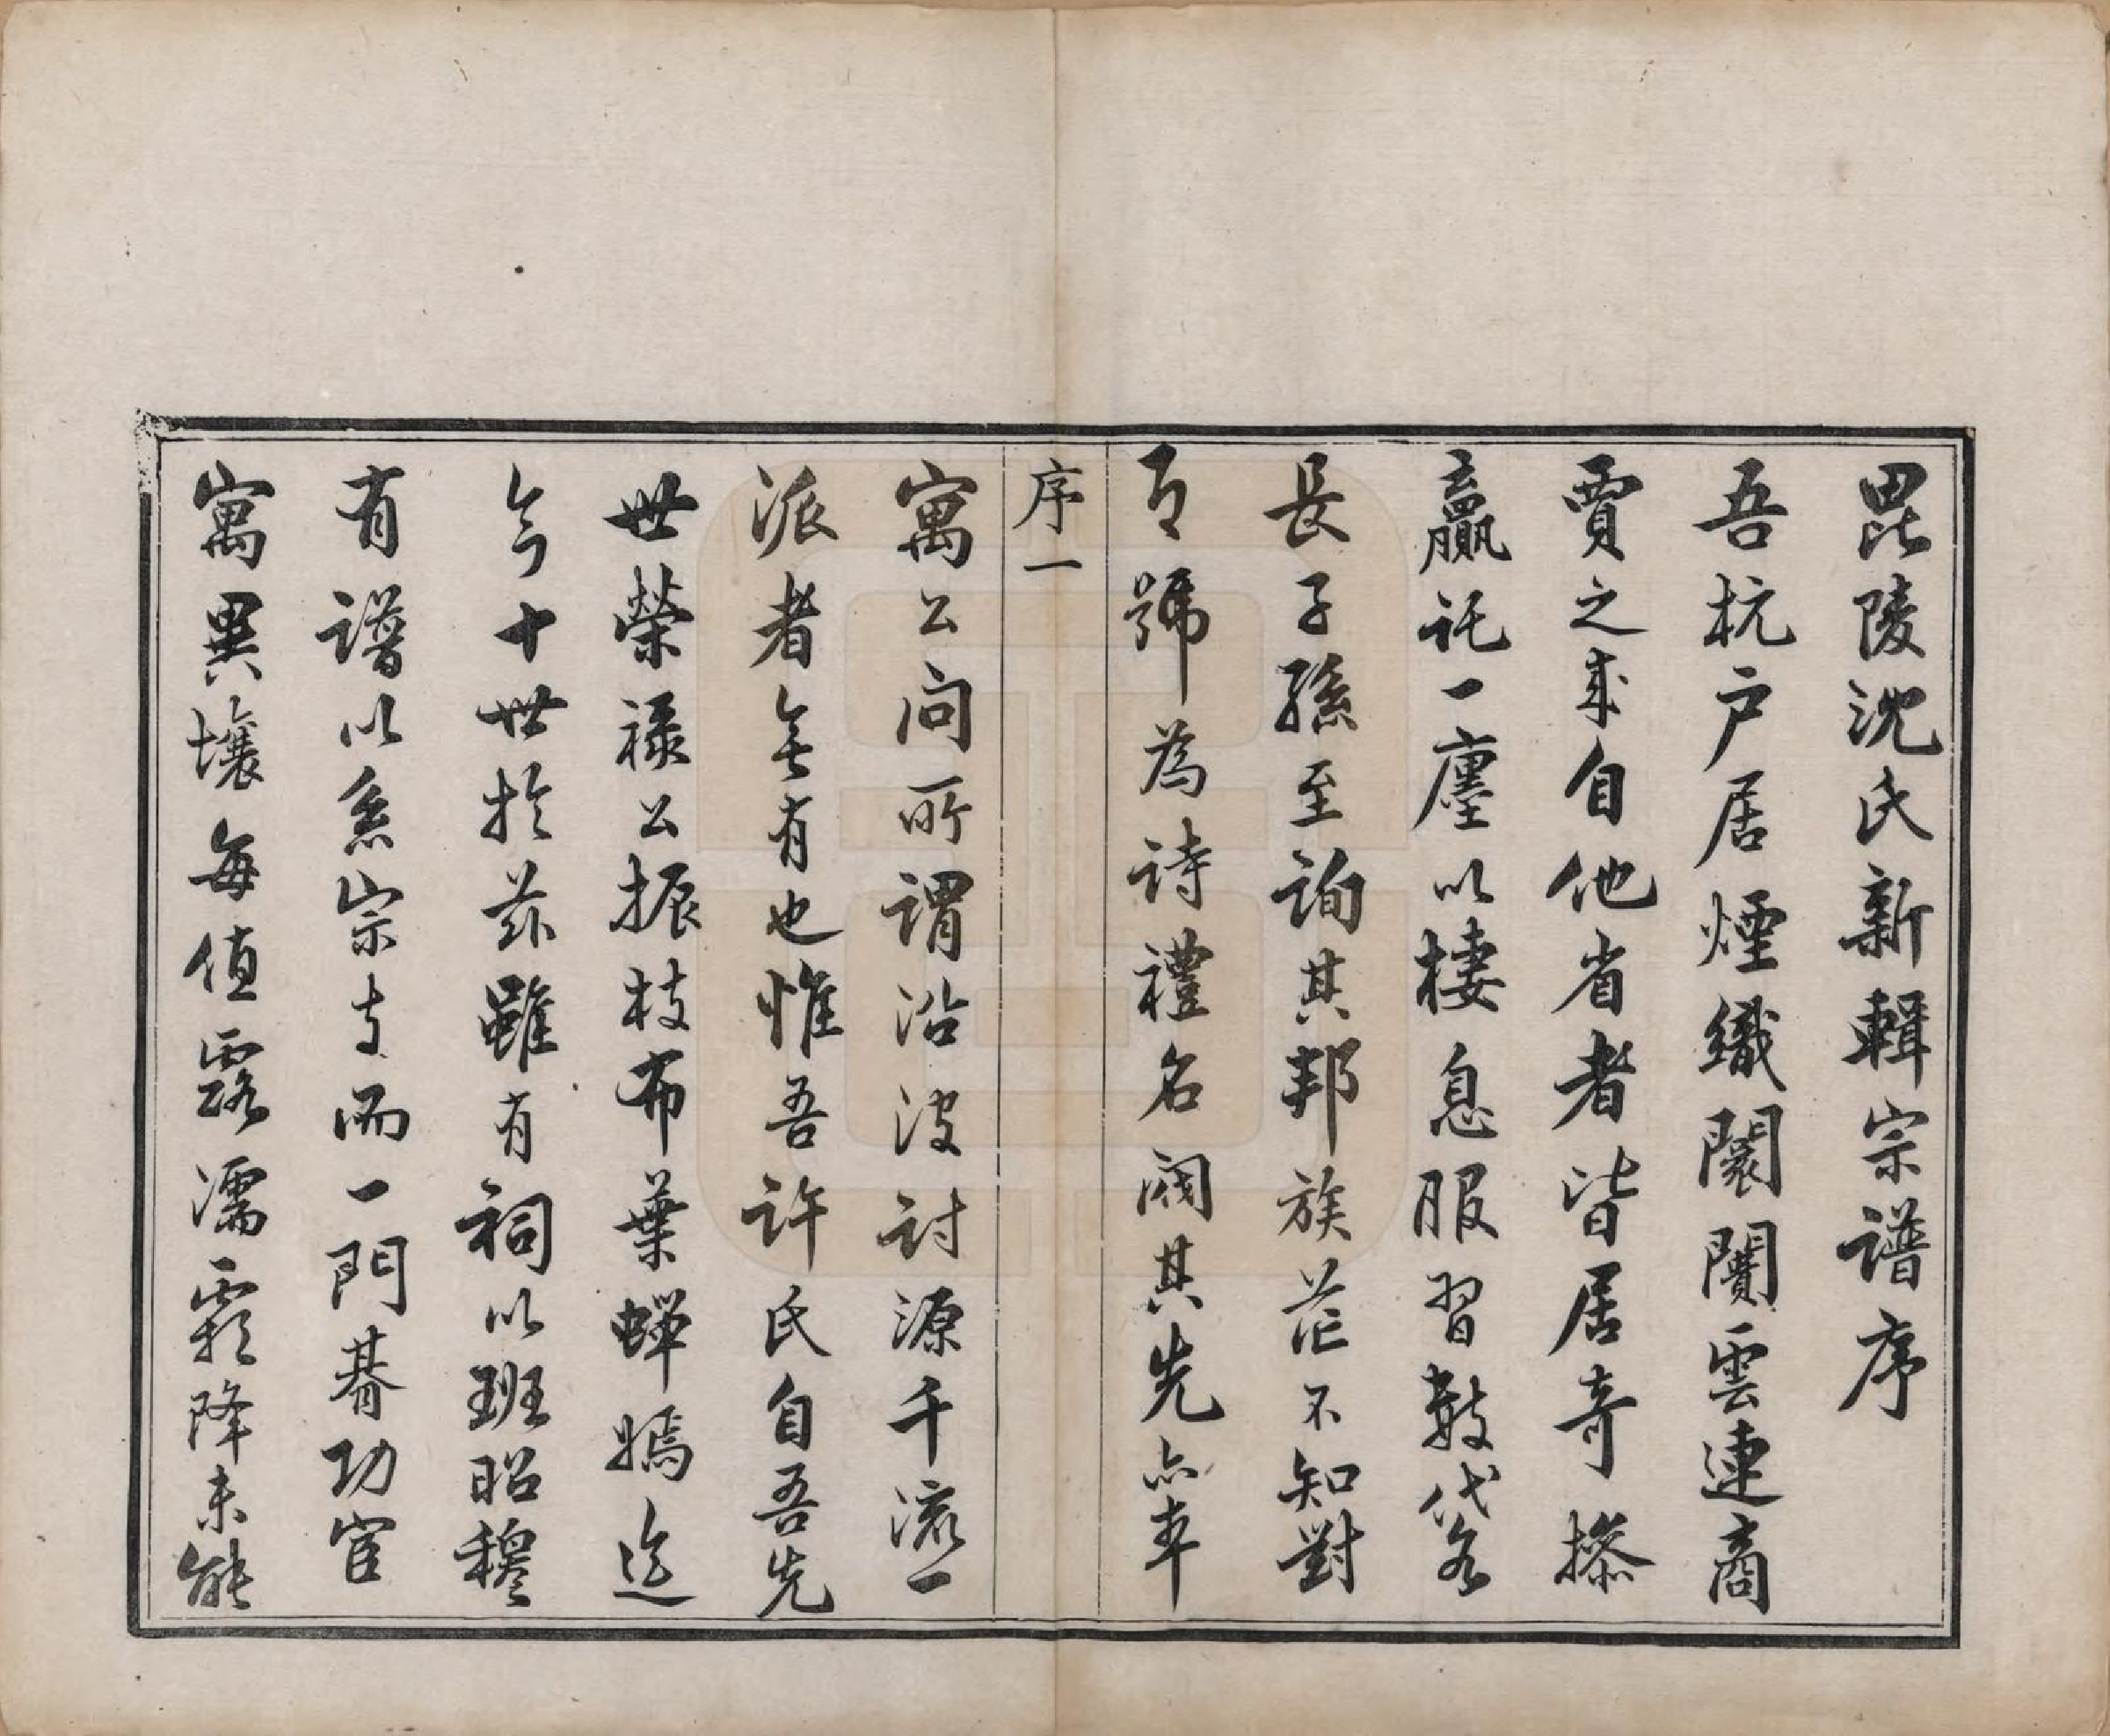 毘陵沈氏新輯宗譜序
吾杭戶居煙織闤闠雲連商
賈之來自他省者皆居奇操
贏託一廛以棲息服習數代名
長子孫至詢其邦族茫不知對
有號為詩禮名閥其先亦率
序一
寓公問所謂沿波討源千流一
派者無有也惟吾許氏自吾先
世榮祿公振枝布葉蟬嫣迄
今十世於茲雖有祠以班昭穆
有譜以系宗支而一門朞功宦
寓異壤每值露濡霜降未能